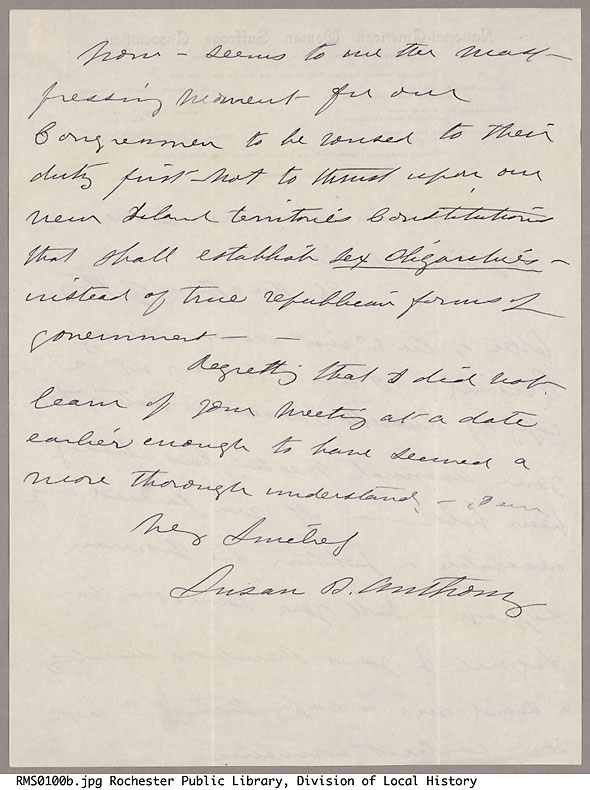 Now – seems to me the most
pressing moment for our
Congressmen to be roused to their
duty first – not to thrust upon our
new Island territories Constitutions
that shall establish sex oligarchies –
instead of true republican forms of
government – –
Regretting that I did not
learn of your meeting at a date
earlier enough to have secured a
more thorough understand'g – I am
Very Sincerely
Susan B. Anthony
RMS0100b.jpg Rochester Public Library, Division of Local History